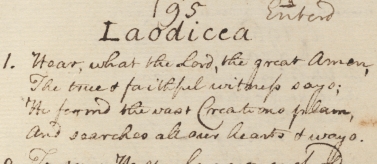 195 Enterd
Laodicea
1. Hear, what the Lord, the great Amen,
The true & faithful witness says;
He form'd the vast Creations plan,
And searches all our hearts & ways.